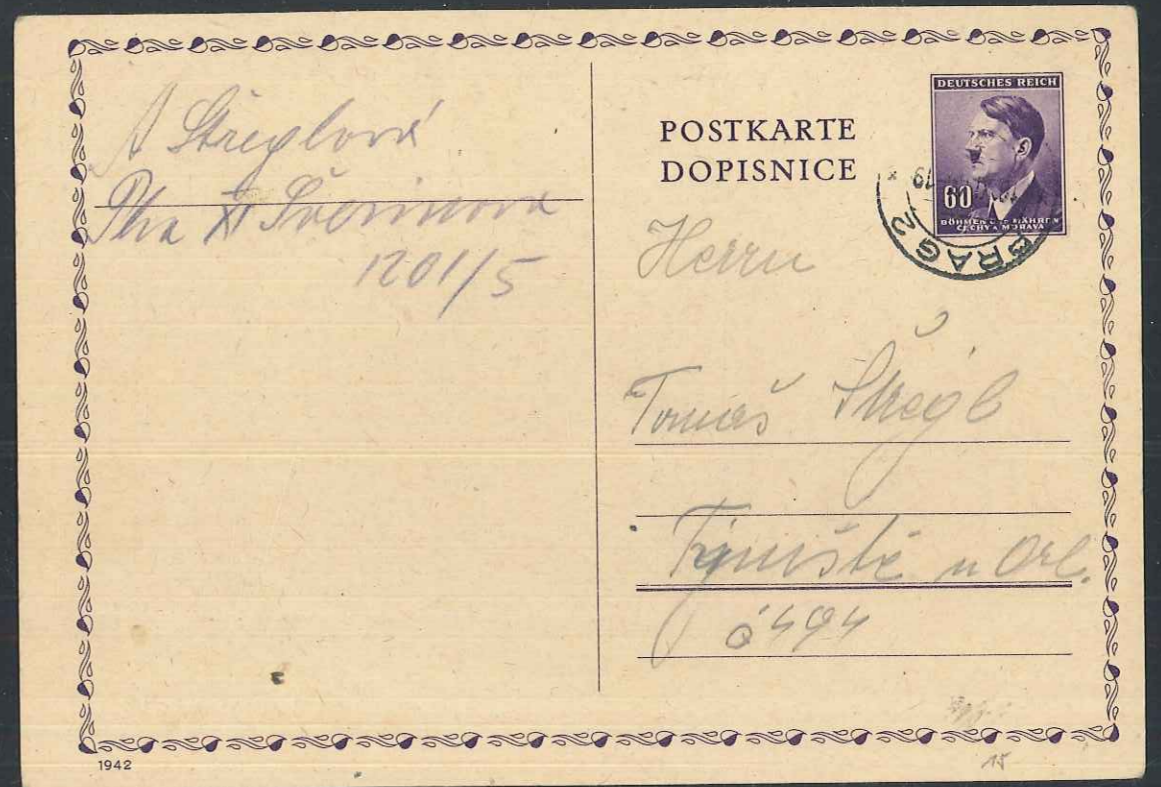 A Střeglová
Pha XI
1201/5
POSTKARTE
DOPISNICE
DEUTSCHES REICH
60
BÖHMEN UND MÄHREN
ČECHY A MORAVA
PRAG 2
Herrn
Tomáš Střegl
Týniště n Orl.
č 494
1942
15